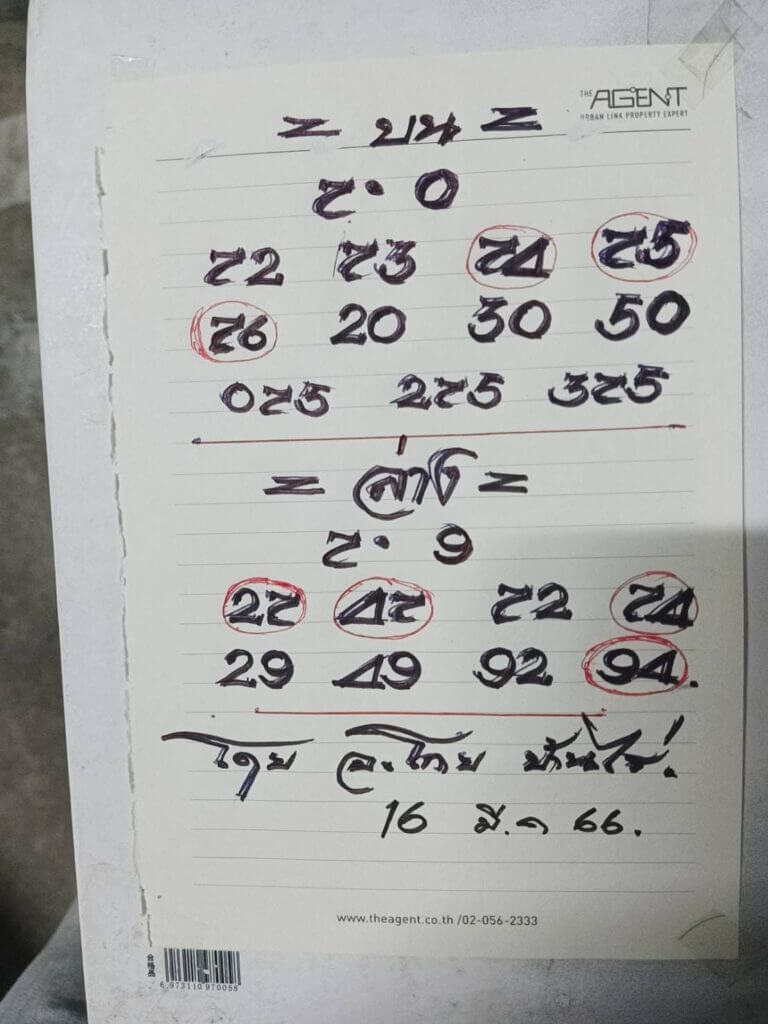 THE AGENT
URBAN LINK PROPERTY EXPERT
= บน =
7. 0
72 73 74 75
76 20 30 50
075 275 375
= ล่าง =
7. 9
27 47 72 74
29 49 92 94.
โดย บ้านไผ่.
16 มี.ค 66.
www.theagent.co.th /02-056-2333
合格品
6 973110 970058